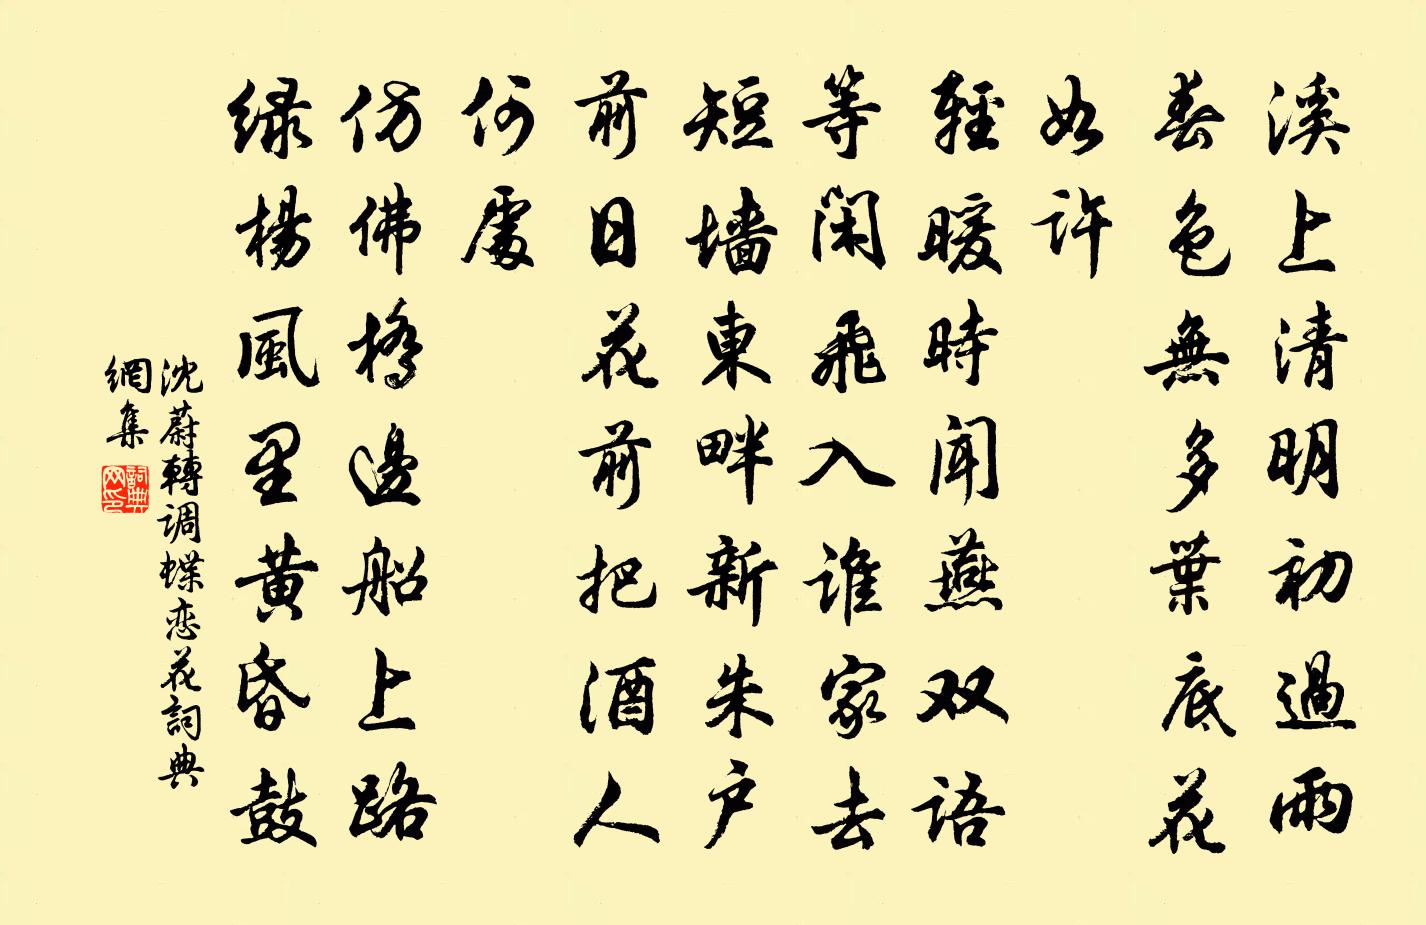 溪上清明初過雨
春色無多葉底花
如許
輕暖時聞燕双語
等闲飛入誰家去
短墙東畔新朱户
前日花前把酒人
何處
仿佛橋邊船上路
绿楊風里黃昏鼓
沈蔚轉调蝶恋花詞典
網集
詞典
网印